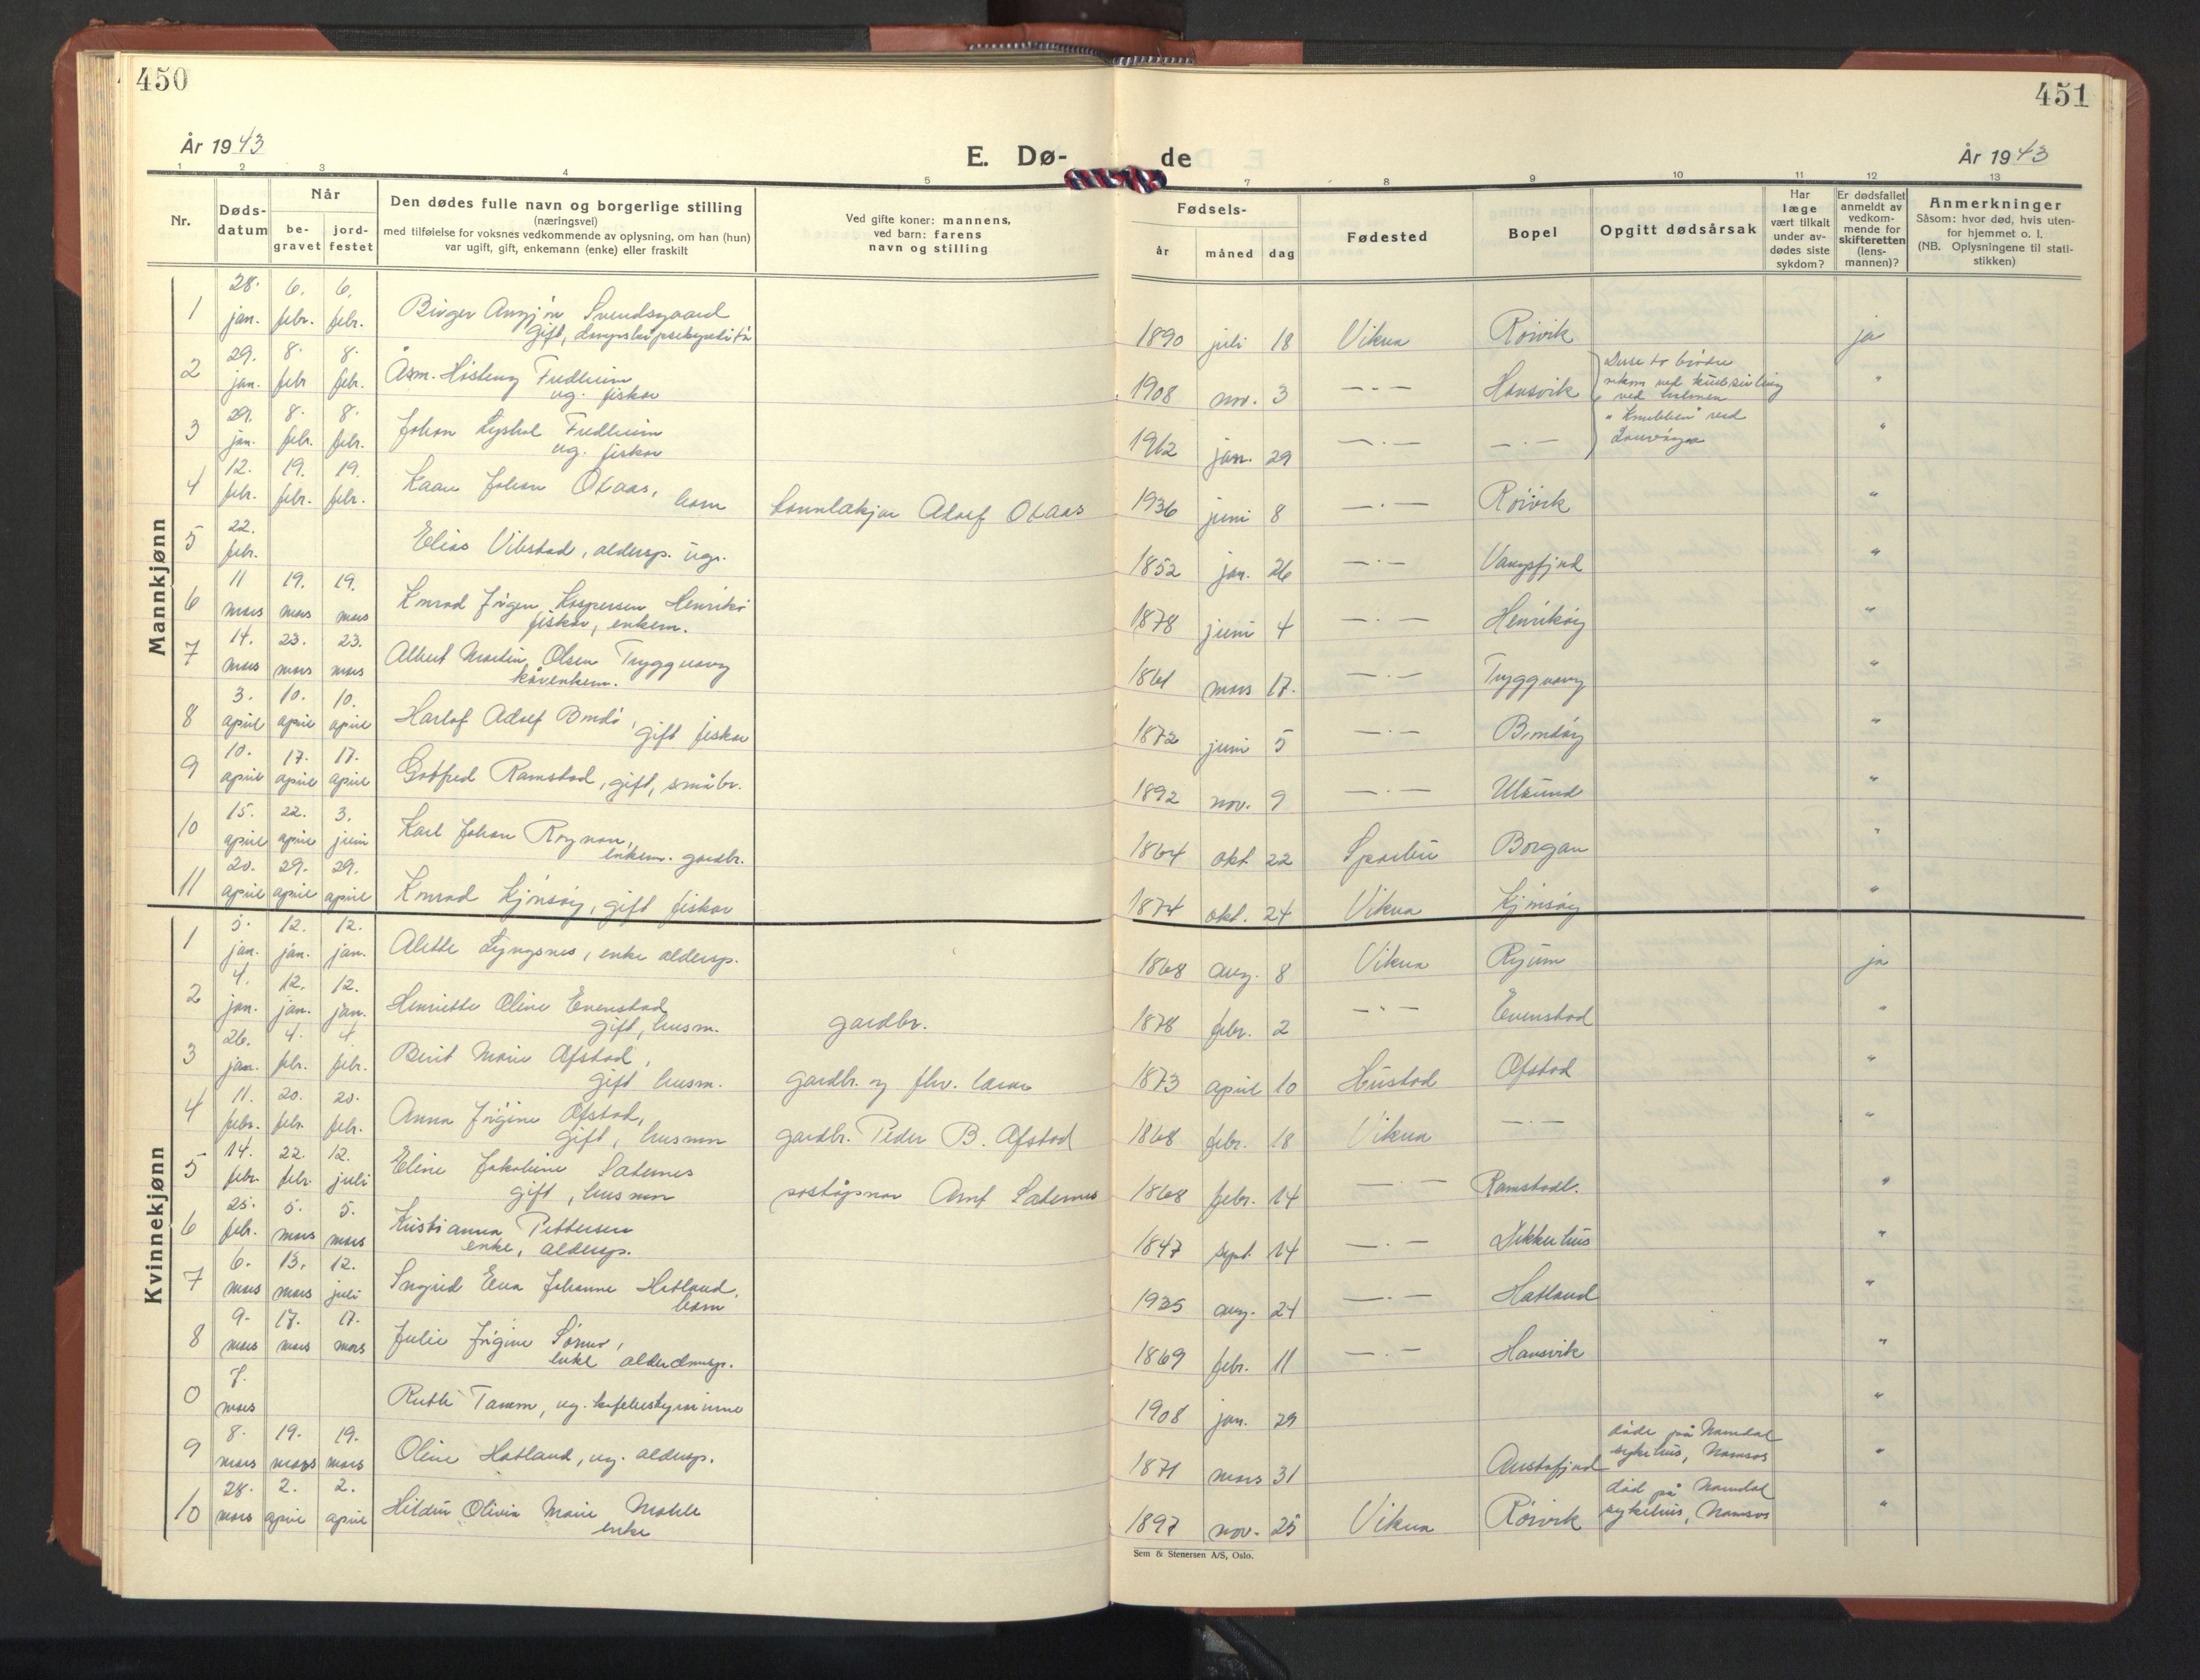 450
451
År 1943
E. Dø-
de
År 1943
1 2 3 4 5 7 8 9 10 11 12 13
Nr.
Døds-
datum
Når
be-
gravet
jord-
festet
Den dødes fulle navn og borgerlige stilling
(næringsvei)
med tilføielse for voksnes vedkommende av oplysning, om han (hun)
var ugift, gift, enkemann (enke) eller fraskilt
Ved gifte koner: mannens,
ved barn: farens
navn og stilling
Fødsels-
år måned dag
Fødested
Bopel
Opgitt dødsårsak
Har
læge
vært tilkalt
under av-
dødes siste
sykdom?
Er dødsfallet
anmeldt av
vedkom-
mende for
skifteretten
(lens-
mannen)?
Anmerkninger
Såsom: hvor død, hvis uten-
for hjemmet o. l.
(NB. Oplysningene til stati-
stikken)
Mannkjønn
1 28. jan. 6. febr. 6. febr. Birger Svendsgaard
gift, 1890 juli 18 Vikna Rörvik ja
2 29. jan. 8. febr 8. febr. Åsm. Fredheim
ug. fisker 1908 nov. 3 —·— Hansvik Disse to brödre
omkom ved
ved holmen
3 29. jan. 8. febr. 8. febr. Johan Fredheim
ug. fisker jan. 29 —·— —·— "Knubben" ved "
4 12. febr. 19. febr. 19. febr. Kaare Johan Otaas,
barn Adolf Otaas 1936 juni 8 —·— Rörvik "
5 22. febr. Elias Vikestad, aldersp. ug. 1852 jan. 26 —·— "
6 11 mars 19. mars 19. mars Konrad Jörgen Kaspersen Henrikö
fisker, enkem. 1878 juni 4 —·— Henriköy "
7 14. mars 23. mars 23. mars Albert Martin Olsen Tryggvaag
kårenkem. 1861 mars 17. —·— Tryggvaag "
8 3. april 10. april 10. april Adolf Bondö,
gift fisker 1872 juni 5 —·— Bondöy "
9 10. april 17. april 17. april Gotfred Ramstad, gift, småbr. 1892 nov. 9 —·— Ulsund "
10 15. april 22. april 3. juni Karl Johan
enkem. gardbr. 1864 okt 22 Sparbu Borgan "
11 20. april 29. april 29. april Konrad Kjönsöy, gift fisker 1874 okt. 24 Vikna Kjönsöy "
Kvinnekjønn
1 5. jan. 12. jan. 12. jan. Alette Lyngsnes, enke aldersp. 1868 aug. 8 Vikna Ryum ja
2 4. jan. 12. jan. 12. jan. Henriette Oline Evenstad
gift, husm. gardbr. 1878 febr. 2 —·— Evenstad "
3 26. jan. 4. febr. 4. febr. Berit Marie Ofstad,
gift husm. gardbr. og fhv. lærer 1873 april 10 Hustad Ofstad "
4 11. febr. 20. febr. 20. febr. Anna Jörgine Ofstad,
gift, husmor gardbr. Peder B. Ofstad 1868 febr. 18 Vikna —·— "
5 14. febr. 22. febr 12. juli Eline Jakobine Saternes
gift, husmor Arnt Saternes 1868 febr. 14 —·— Ramstadl. "
6 25. febr. 5. mars 5. mars Kristianna Pettersen
enke, aldersp. 1847 sept. 14 —·— "
7 6. mars 13. mars 12. juli Eva Johanne Hatland,
barn 1935 aug. 24 —·— Hatland "
8 9. mars 17. mars 17. mars Julie Jörgine
enke 1869 febr. 11 —·— Hansvik "
0 7. mars Ruth Tamm, ug. 1908 jan. 29 "
9 8. mars 19. mars 19. mars Oline Hatland, ug. aldersp. 1871 mars 31 Austafjord döde på Namdal
sykehus, Namsos "
10 28. mars 2. april 2. april Olivia Marie
enke 1897 nov. 25 Vikna Rörvik död på Namdal
sykehus, Namsos "
Sem & Stenersen A/S, Oslo.